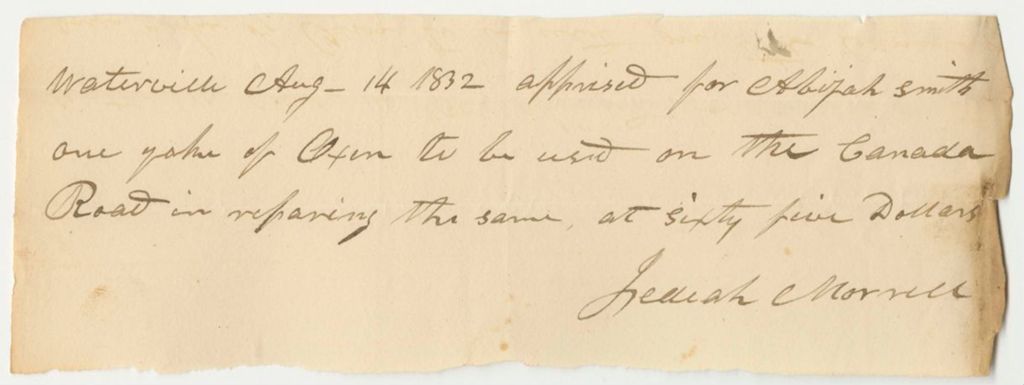 Waterville Aug- 14 1832 apprised for Abijah Smith
one yoke of Oxen to be used on the Canada
Road in reparing the same, at sixty five Dollars
Jedediah Morrell